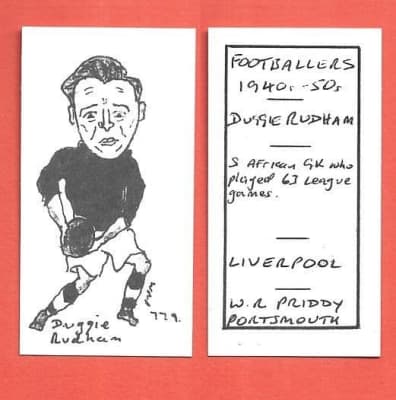 779.
Duggie
Rudham
FOOTBALLERS
1940s-50s
DUGGIE RUDHAM
S AFRICAN GK who
played 63 League
games.
LIVERPOOL
W.R PRIDDY
PORTSMOUTH